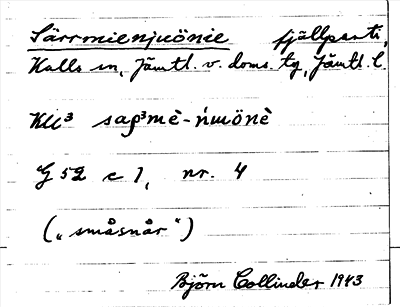 Särrmienjuönie fjällparti,
Kalls sn, Jämtl. v. doms. tg, Jämtl. l.
KU³ sap³mè-ńuönè
G 52 c 1, nr. 4
("småsnår")
Björn Collinder 1943